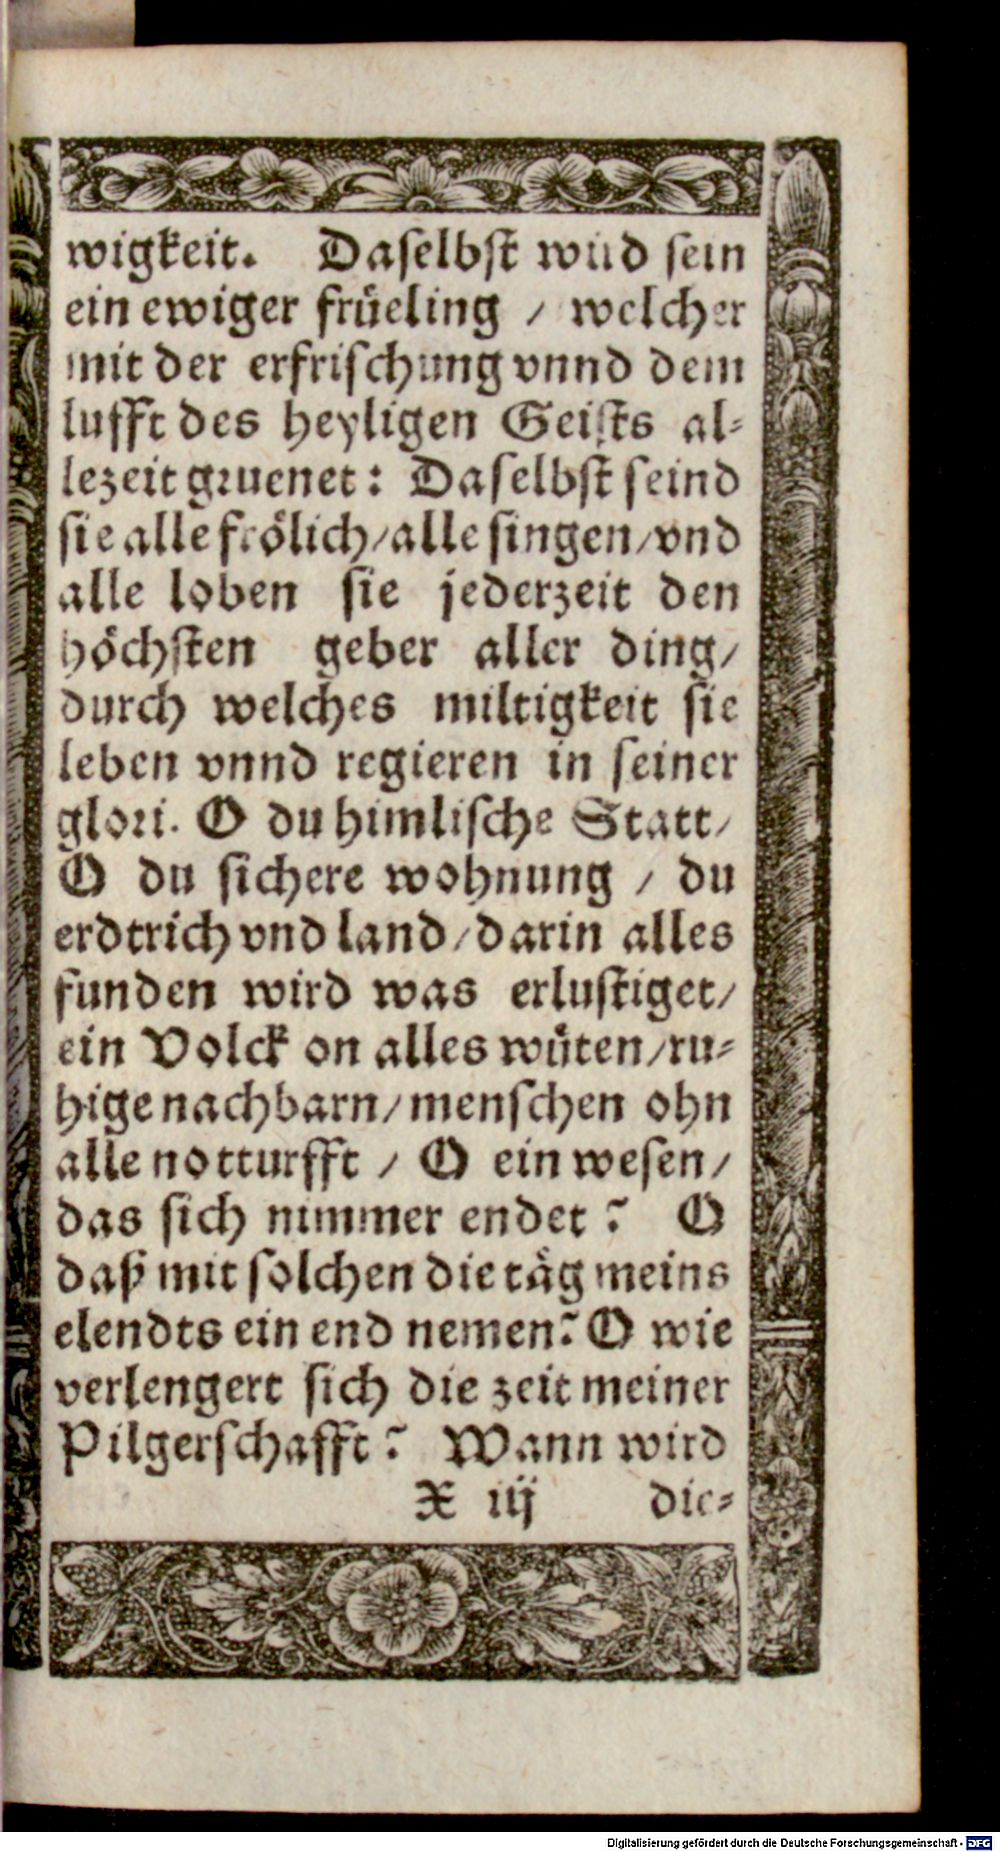 wigkeit. Daselbst wird sein
ein ewiger früeling / welcher
mit der erfrischung vnnd dem
lufft des heyligen Geists al-
lezeit gruenet: Daselbst seind
sie alle frölich/alle singen/vnd
alle loben sie jederzeit den
höchsten geber aller ding/
durch welches miltigkeit sie
leben vnnd regieren in seiner
glori. O du himlische Statt/
O du sichere wohnung / du
erdtrich vnd land/darin alles
funden wird was erlustiget/
ein Volck on alles wüten/ru-
hige nachbarn/menschen ohn
alle notturfft / O ein wesen/
das sich nimmer endet? O
daß mit solchen die täg meins
elendts ein end nemen? O wie
verlengert sich die zeit meiner
Pilgerschafft? Wann wird
X iij die-
Digitalisierung gefördert durch die Deutsche Forschungsgemeinschaft - DFG